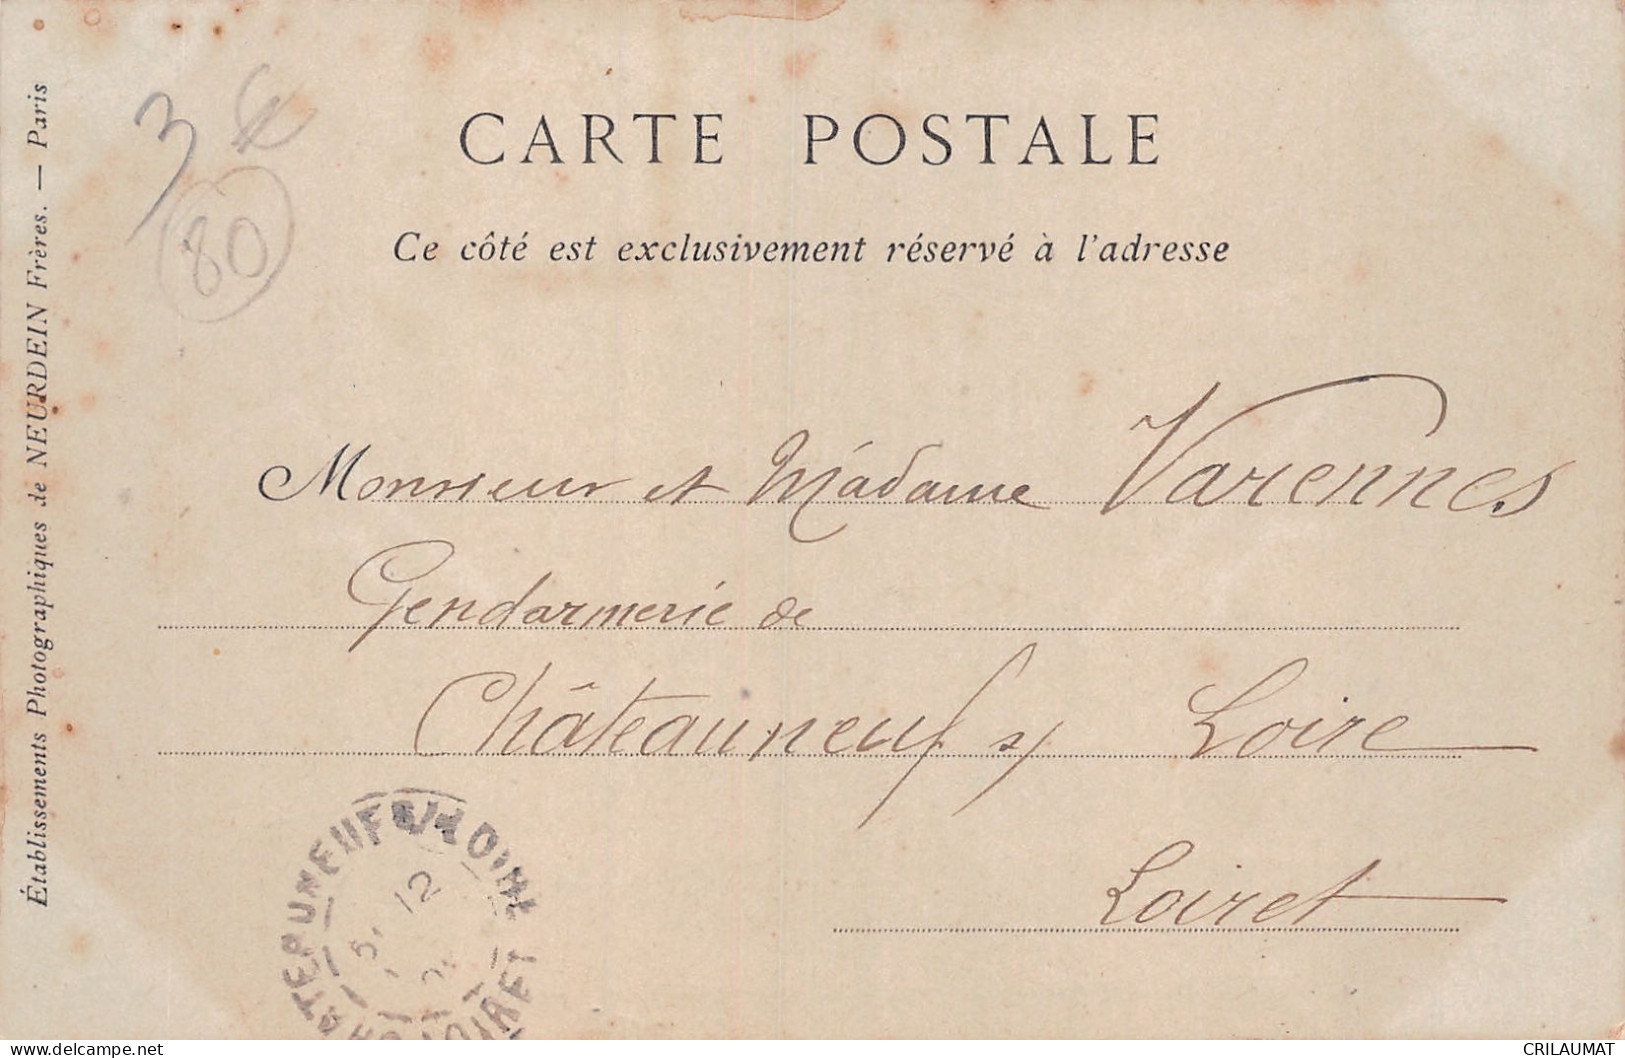 Établissements Photographiques de NEURDEIN Frères. — Paris
3 €
80
CARTE POSTALE
Ce côté est exclusivement réservé à l'adresse
Monsieur et Madame Varennes
Gendarmerie de
Châteauneuf s/ Loire
Loiret
12
LOIRET
CRILAUMAT